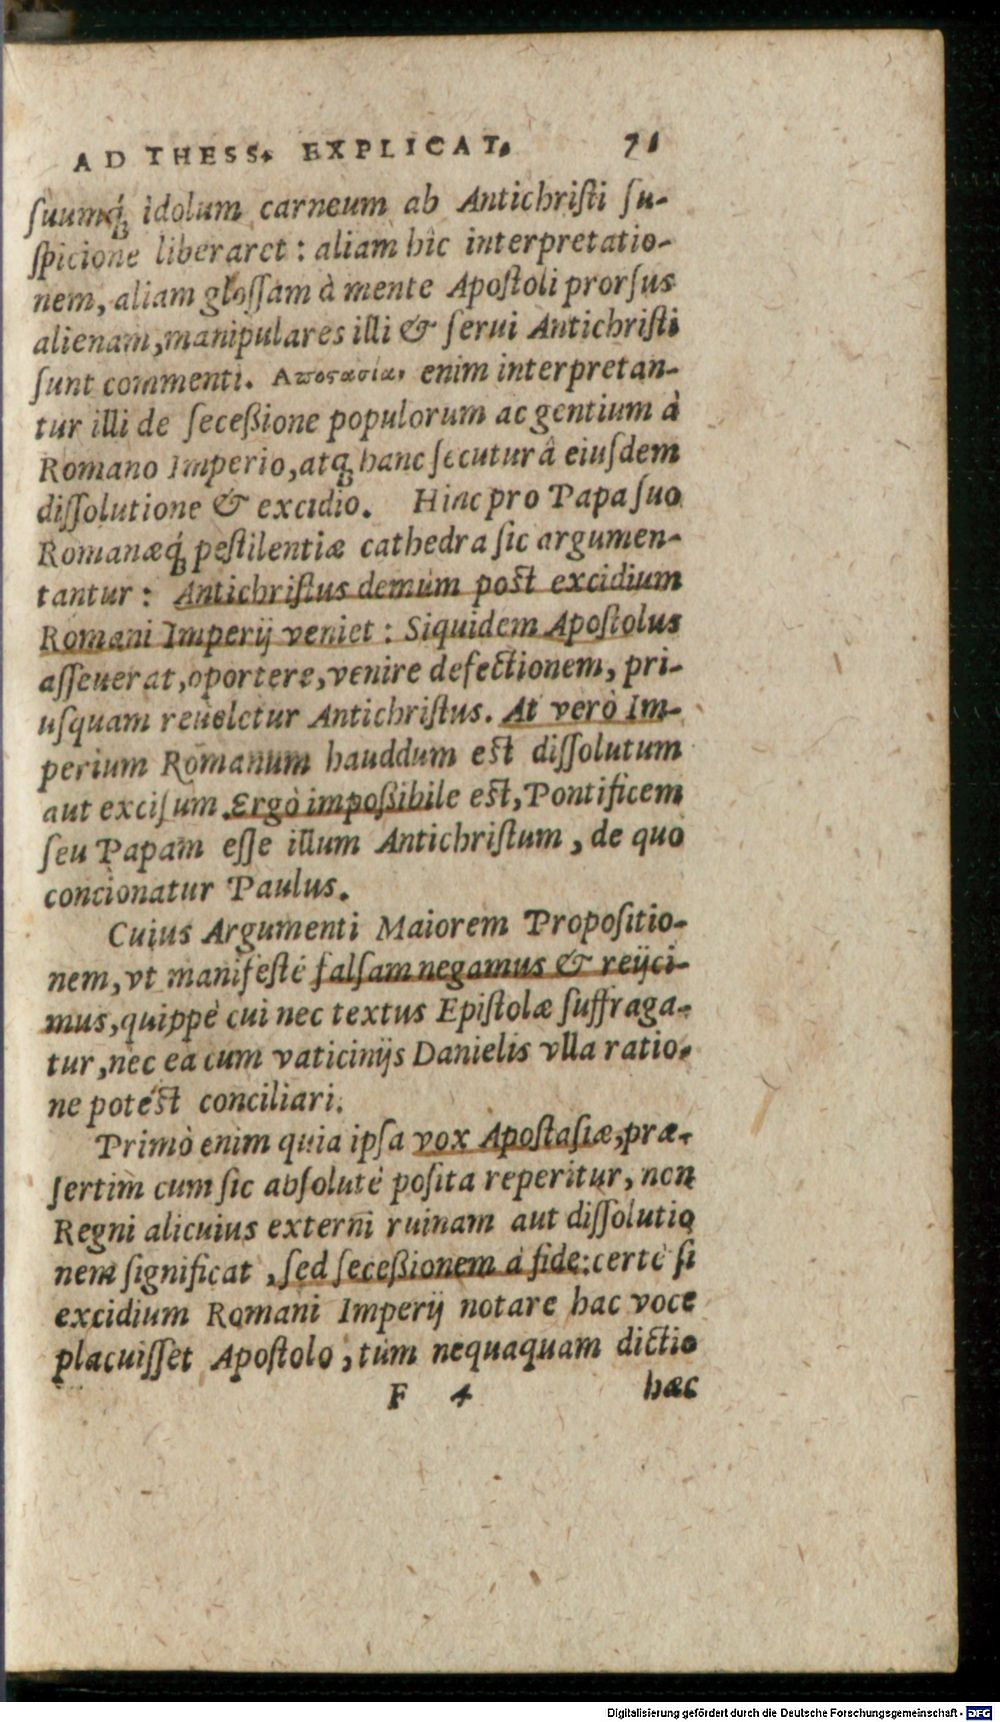 AD THESS. EXPLICAT. 71
ſuumq́; idolum carneum ab Antichriſti ſu-
ſpicione liberaret : aliam hîc interpretatio-
nem, aliam gloſſam à mente Apoſtoli prorſus
alienam, manipulares illi & ſerui Antichriſti
ſunt commenti. Αποστασίαν enim interpretan-
tur illi de ſeceßione populorum ac gentium à
Romano Imperio, atq; hanc ſecuturâ eiuſdem
diſſolutione & excidio. Hinc pro Papa ſuo
Romanæq́; peſtilentiæ cathedra ſic argumen-
tantur : Antichriſtus demùm post excidium
Romani Imperij veniet : Siquidem Apoſtolus
aſſeuerat, oportere, venire defectionem, pri-
uſquam reueletur Antichriſtus. At verò Im-
perium Romanum hauddum est diſſolutum
aut exciſum. Ergò impoßibile est, Pontificem
ſeu Papam eſſe illum Antichriſtum, de quo
concionatur Paulus.
Cuius Argumenti Maiorem Propoſitio-
nem, vt manifeſtè falſam negamus & reijci-
mus, quippè cui nec textus Epiſtolæ ſuffraga-
tur, nec ea cum vaticinijs Danielis vlla ratio-
ne potest conciliari.
Primò enim quia ipſa vox Apoſtaſiæ, præ-
ſertìm cum ſic abſolutè poſita reperitur, non
Regni alicuius externi ruinam aut diſſolutio
nem ſignificat, ſed ſeceßionem à fide: certè ſi
excidium Romani Imperij notare hac voce
placuiſſet Apoſtolo, tùm nequaquam dictio
F 4 hæc
Digitalisierung gefördert durch die Deutsche Forschungsgemeinschaft - DFG